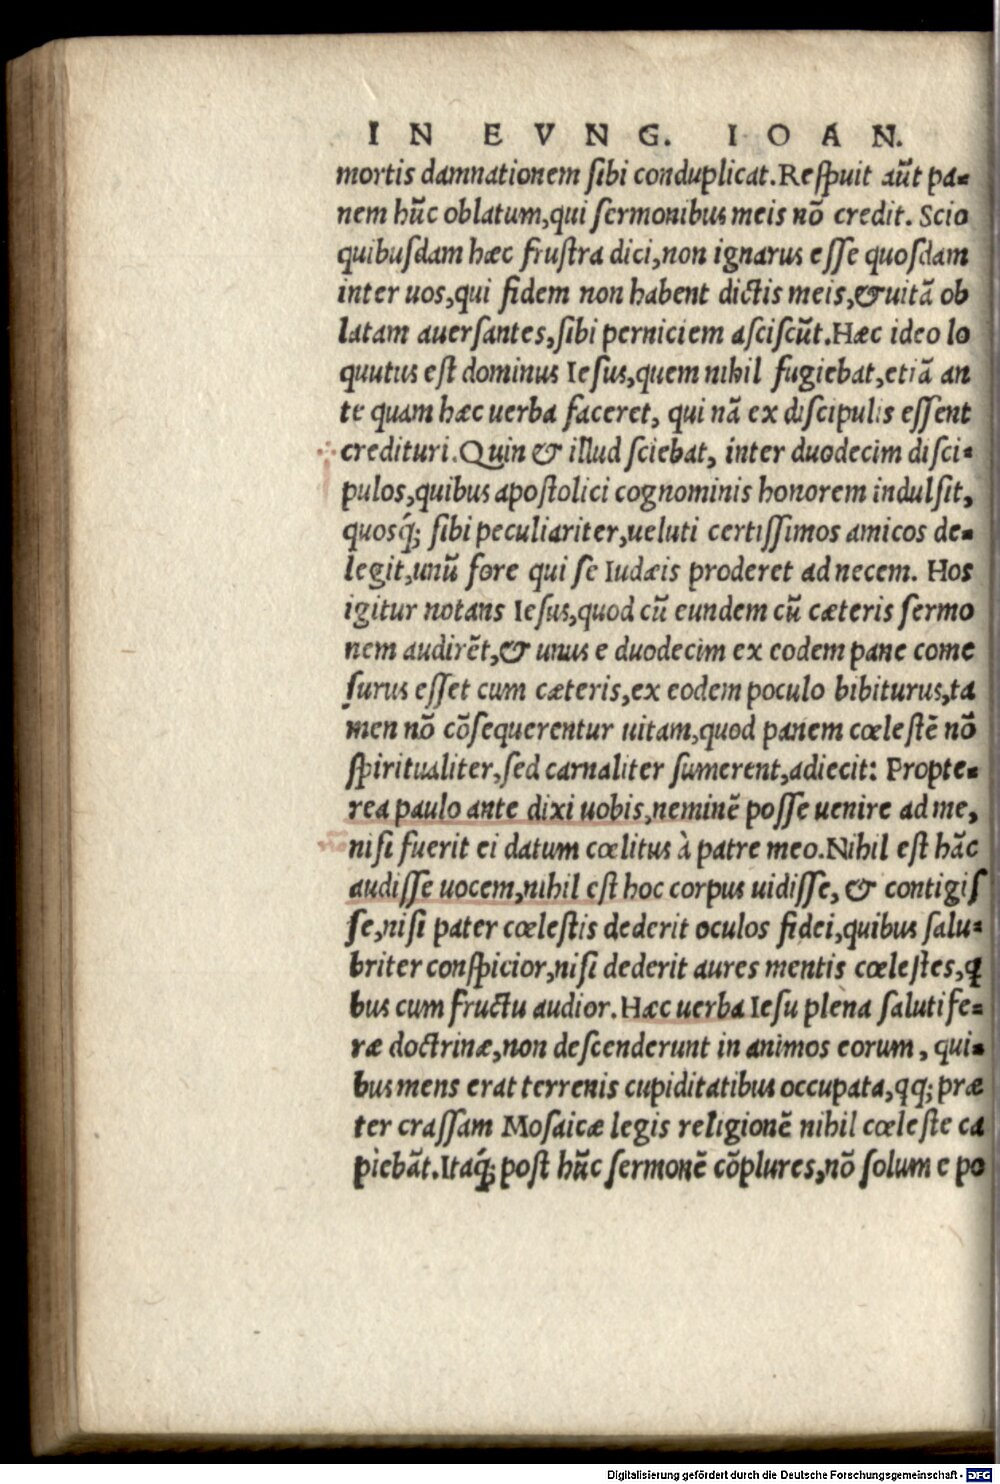 IN EVNG. IOAN.
mortis damnationem sibi conduplicat. Respuit aũt pa-
nem hũc oblatum, qui sermonibus meis nõ credit. Scio
quibusdam hæc frustra dici, non ignarus esse quosdam
inter uos, qui fidem non habent dictis meis, & uitã ob
latam auersantes, sibi perniciem asciscũt. Hæc ideo lo
quutus est dominus Iesus, quem nihil fugiebat, etiã an
te quam hæc uerba faceret, qui nã ex discipulis essent
credituri. Quin & illud sciebat, inter duodecim disci-
pulos, quibus apostolici cognominis honorem indulsit,
quosq́; sibi peculiariter, ueluti certissimos amicos de-
legit, unũ fore qui se Iudæis proderet ad necem. Hos
igitur notans Iesus, quod cũ eundem cũ cæteris sermo
nem audirẽt, & unus e duodecim ex eodem pane come
surus esset cum cæteris, ex eodem poculo bibiturus, ta
men nõ cõsequerentur uitam, quod panem cœlestẽ nõ
spiritualiter, sed carnaliter sumerent, adiecit: Propte-
rea paulo ante dixi uobis, neminẽ posse uenire ad me,
nisi fuerit ei datum cœlitus à patre meo. Nihil est hãc
audisse uocem, nihil est hoc corpus uidisse, & contigis
se, nisi pater cœlestis dederit oculos fidei, quibus salu-
briter conspicior, nisi dederit aures mentis cœlestes, ꝗ
bus cum fructu audior. Hæc uerba Iesu plena salutife-
ræ doctrinæ, non descenderunt in animos eorum, qui-
bus mens erat terrenis cupiditatibus occupata, ꝗq; præ
ter crassam Mosaicæ legis religionẽ nihil cœleste ca
piebãt. Itaq́; post hũc sermonẽ cõplures, nõ solum e po
Digitalisierung gefördert durch die Deutsche Forschungsgemeinschaft - DFG